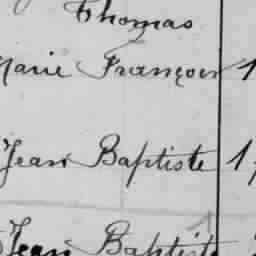 Thomas
Marie François 1
Jean Baptiste 1
Jean Baptiste